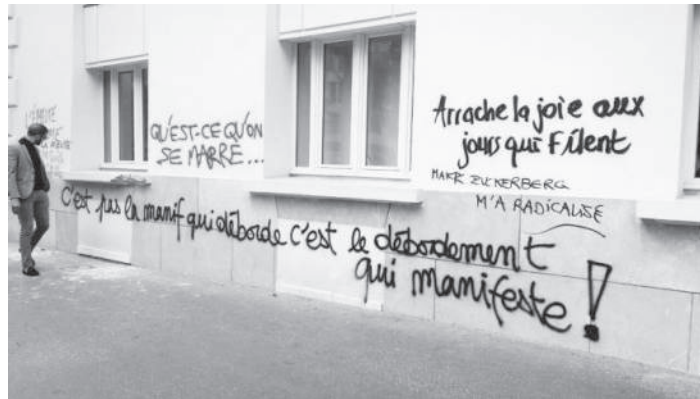 QU'EST-CE QU'ON
SE MARRE...
Arrache la joie aux
jours qui Filent
MARK ZUCKERBERG
M'A RADICALISÉ
C'est pas la manif qui déborde c'est le débordement
qui manifeste !